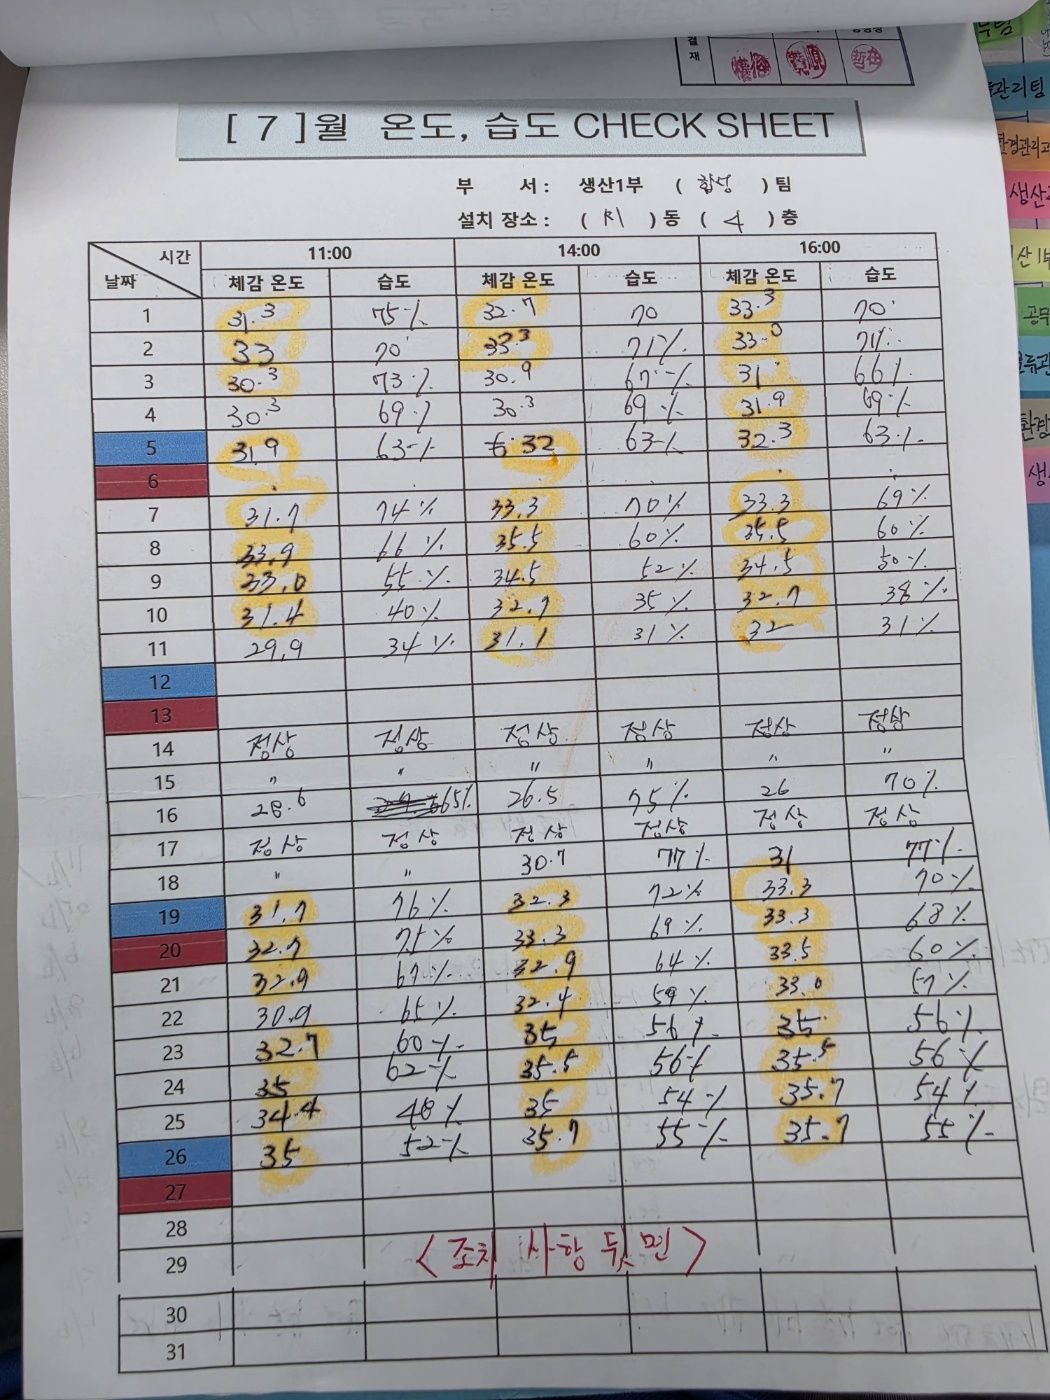 결재
[ 7 ]월 온도, 습도 CHECK SHEET
부 서 : 생산1부 ( 합성 ) 팀
설치 장소 : ( ) 동 ( 4 ) 층
시간 날짜 11:00 14:00 16:00
체감 온도 습도 체감 온도 습도 체감 온도 습도
1 31.3 75% 32.7 70 33.3 70
2 33 70 33.3 71% 33.0 71%
3 30.3 73% 30.9 67% 31 66%
4 30.3 69% 30.3 69% 31.9 69%
5 31.9 63% 32 63% 32.3 63%
6
7 31.7 74% 33.3 70% 33.3 69%
8 33.9 66% 35.5 60% 35.5 60%
9 33.0 55% 34.5 52% 34.5 50%
10 31.4 40% 32.7 35% 32.7 38%
11 29.9 34% 31.1 31% 32 31%
12
13
14 정상 정상 정상 정상 정상 정상
15 " " " " " "
16 28.6 65% 26.5 75% 26 70%
17 정상 정상 정상 정상 정상 정상
18 " " 30.7 77% 31 77%
19 31.7 76% 32.3 72% 33.3 70%
20 32.7 71% 33.3 69% 33.3 68%
21 32.9 67% 32.9 64% 33.5 60%
22 30.9 65% 32.4 59% 33.0 57%
23 32.7 60% 35 56% 35 56%
24 35 62% 35.5 56% 35.5 56%
25 34.4 48% 35 54% 35.7 54%
26 35 52% 35.7 55% 35.7 55%
27
28
29
<조치 사항 뒷면>
30
31
관리팀
환경관리과
생산
산1부
공무
환경